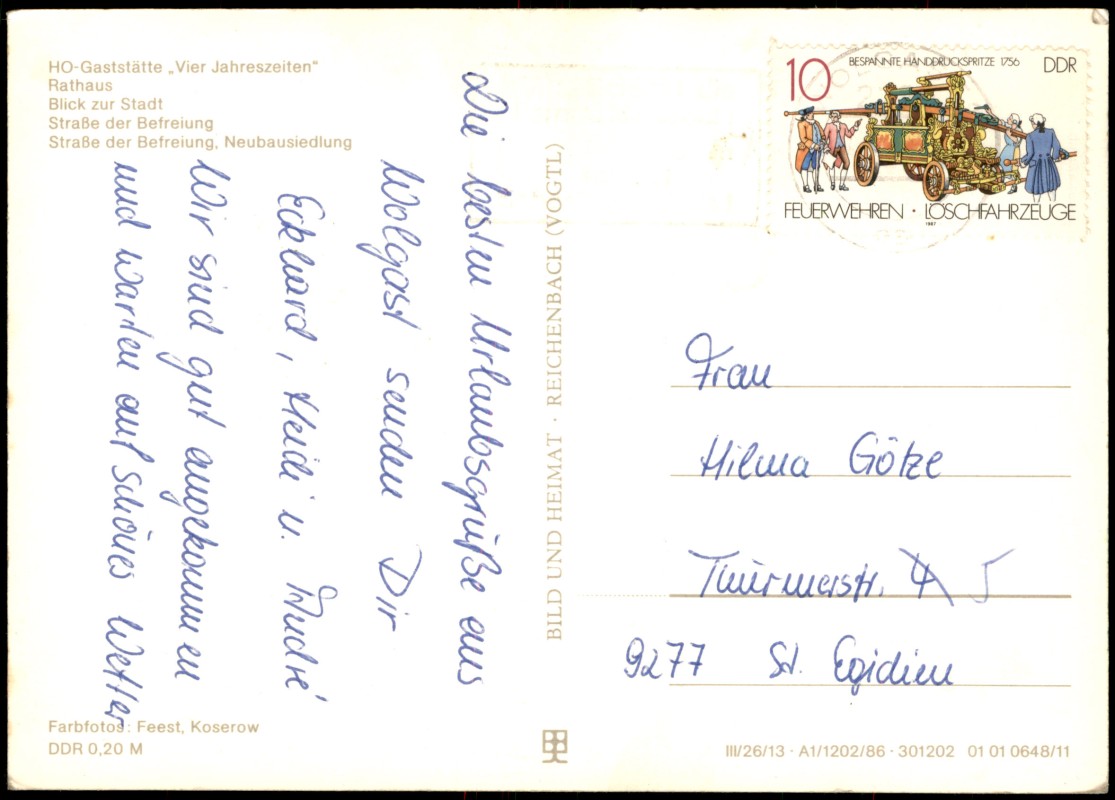 HO-Gaststätte „Vier Jahreszeiten"
Rathaus
Blick zur Stadt
Straße der Befreiung
Straße der Befreiung, Neubausiedlung
Die besten Urlaubsgrüße aus
Wolgast senden Dir
Eckhard, Heidi u. André
Wir sind gut angekommen
und warten auf schönes Wetter
Farbfotos: Feest, Koserow
DDR 0,20 M
BILD UND HEIMAT · REICHENBACH (VOGTL)
10
BESPANNTE HANDDRUCKSPRITZE 1756
DDR
FEUERWEHREN · LÖSCHFAHRZEUGE
1987
Frau
Hilma Götze
Thürmerstr. 4 5
9277 St. Egidien
III/26/13 · A1/1202/86 · 301202 01 01 0648/11